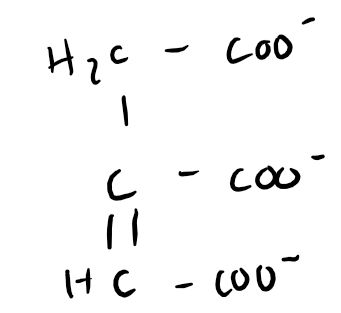 H₂C - COO⁻
|
C - COO⁻
||
HC - COO⁻